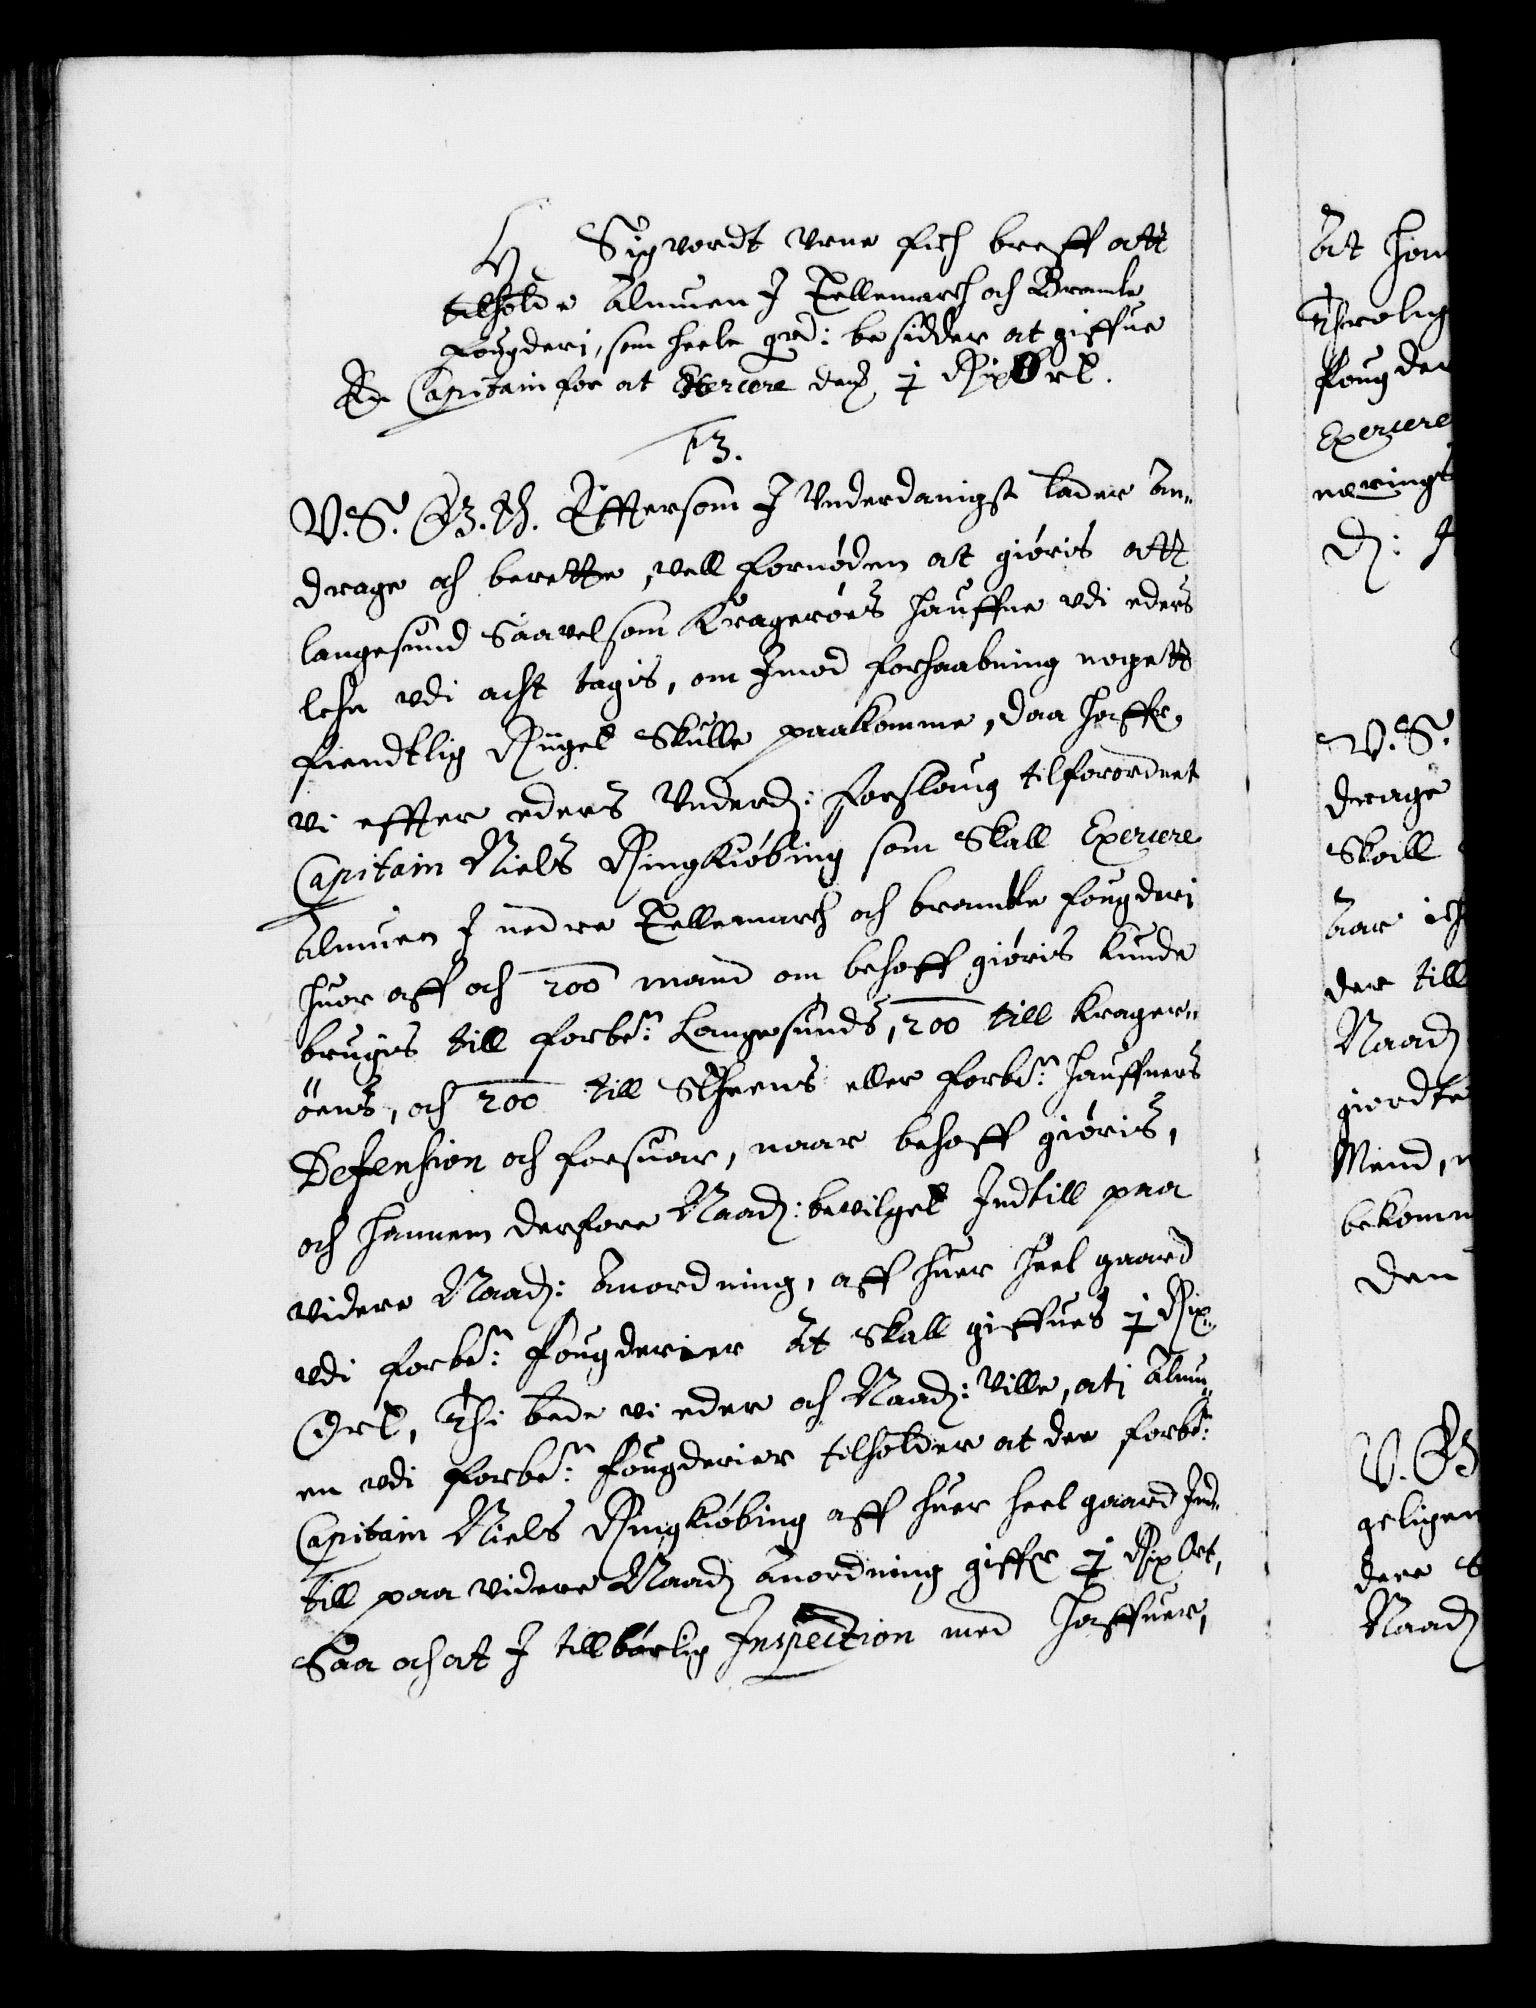 H. Sigvordt Urne fich breff att
tilholde Almuen J Tellemarch och Bramle
fougderi, som heele grd: besidder at giffue
En Capitain for at Exercere dem j Rix Ort.
13.
V. S. G. T. Effter som J Underdanigst lader An„
drage och berette, vell fornøden at giøris att
Langesund Saavelsom Kragerøes hauffne udi eders
Lehn udi acht tagis, om Jmod forhaabning nogett
fiendtlig Rygel Skulle paakomme, daa haffr
vi effter eders Underd: forslaug tilforordnet
Capitain Niels Ringkiøbing som Skall Exercere
Almuen J nedre Tellemarch och bramble fougderi
huor aff och 200 mand om behoff giøris kunde
brugis till forbn: Langesunds, 200 till Krager„
øens, och 200 till Scheens eller forbn: hauffners
Defension och forsuar, naar behoff giøris,
och hannem derfore Naad: bevilget Jndtill paa
videre Naad: Anordning, aff huer heel gaard
udi forbn: fougderier At Skall giffues j Rix
Ort, Thi bede vi eder och Naad: ville, ati Almu„
en udi forbn: fougderier tilholder at dee forbn:
Capitain Niels Ringkiøbing aff huer heel gaard Jnd„
till paa videre Naad Anordning giffr j Rix Ort,
Saa och at J tillbørlig Inspection med haffuer,
At han
Throlig
foug der
Exercere
nærings
D: J
V. S.
drage
Skall
Aar ich
der till
Naad
giordte
Mend,
bekomm
Den
V. G
geligen
dere
Naad